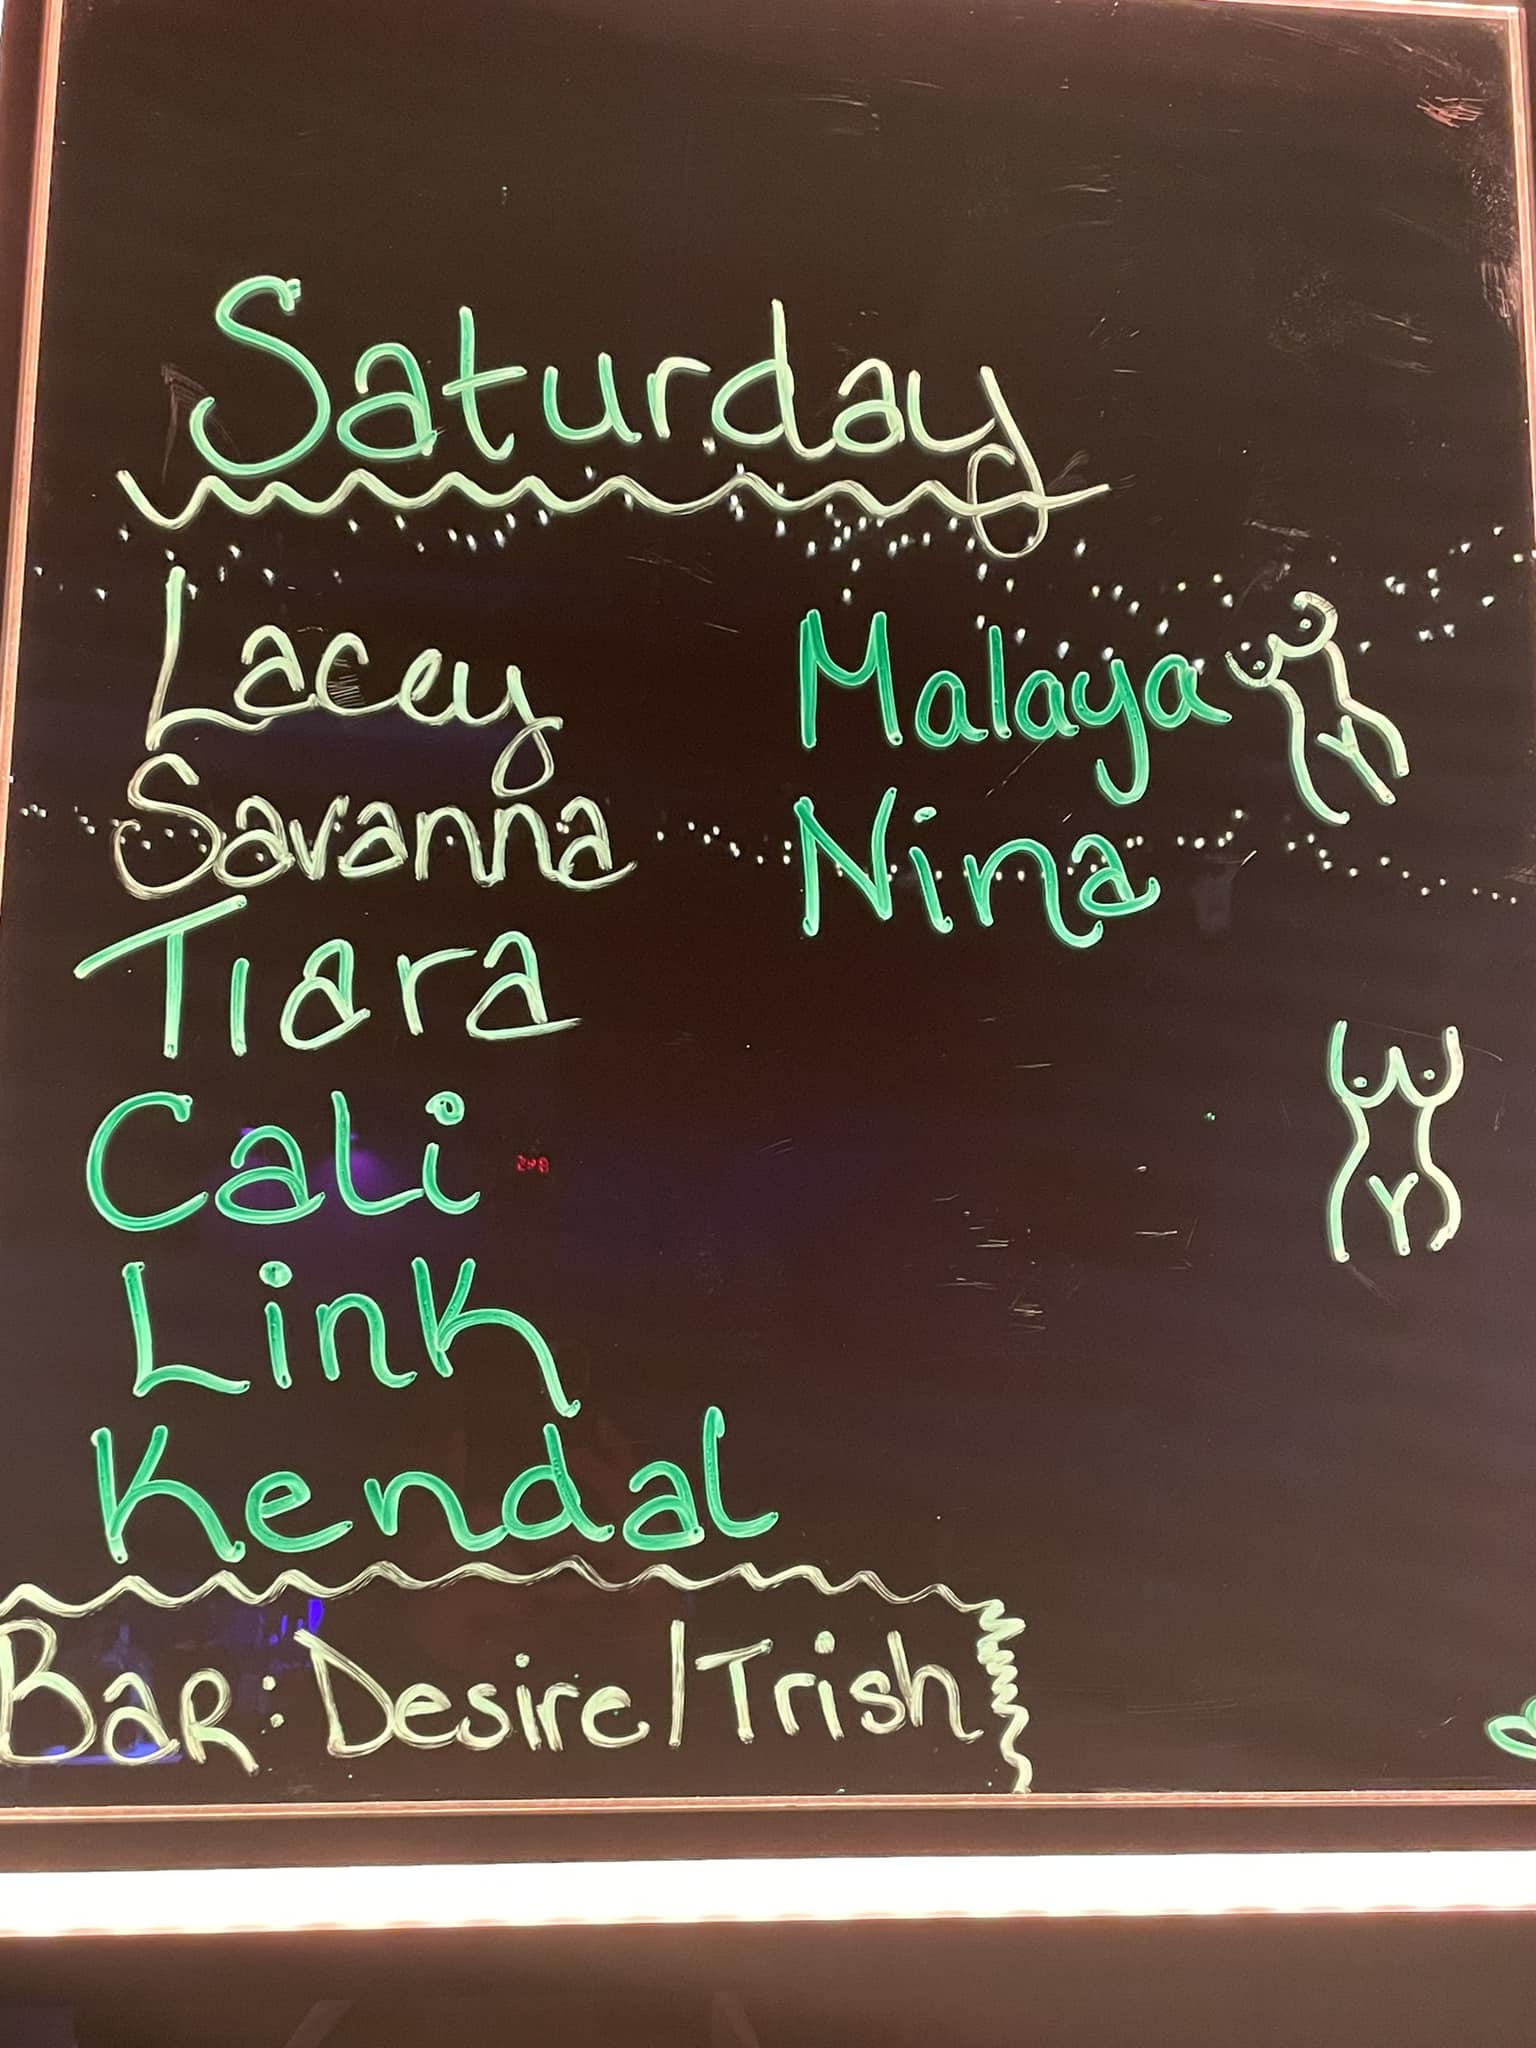 Saturday
Lacey
Savanna
Tiara
Cali
Link
Kendal
Malaya
Nina
BaR: Desire/Trish